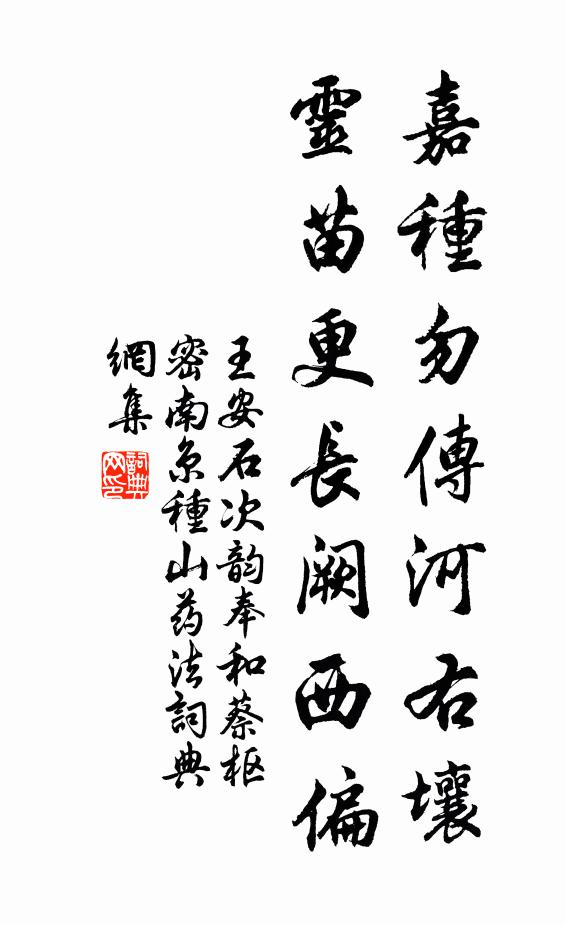 嘉種勿傳河右壤
靈苗更長闕西偏
王安石次韵奉和蔡枢
密南京種山药法詞典
網集
詞典
网印